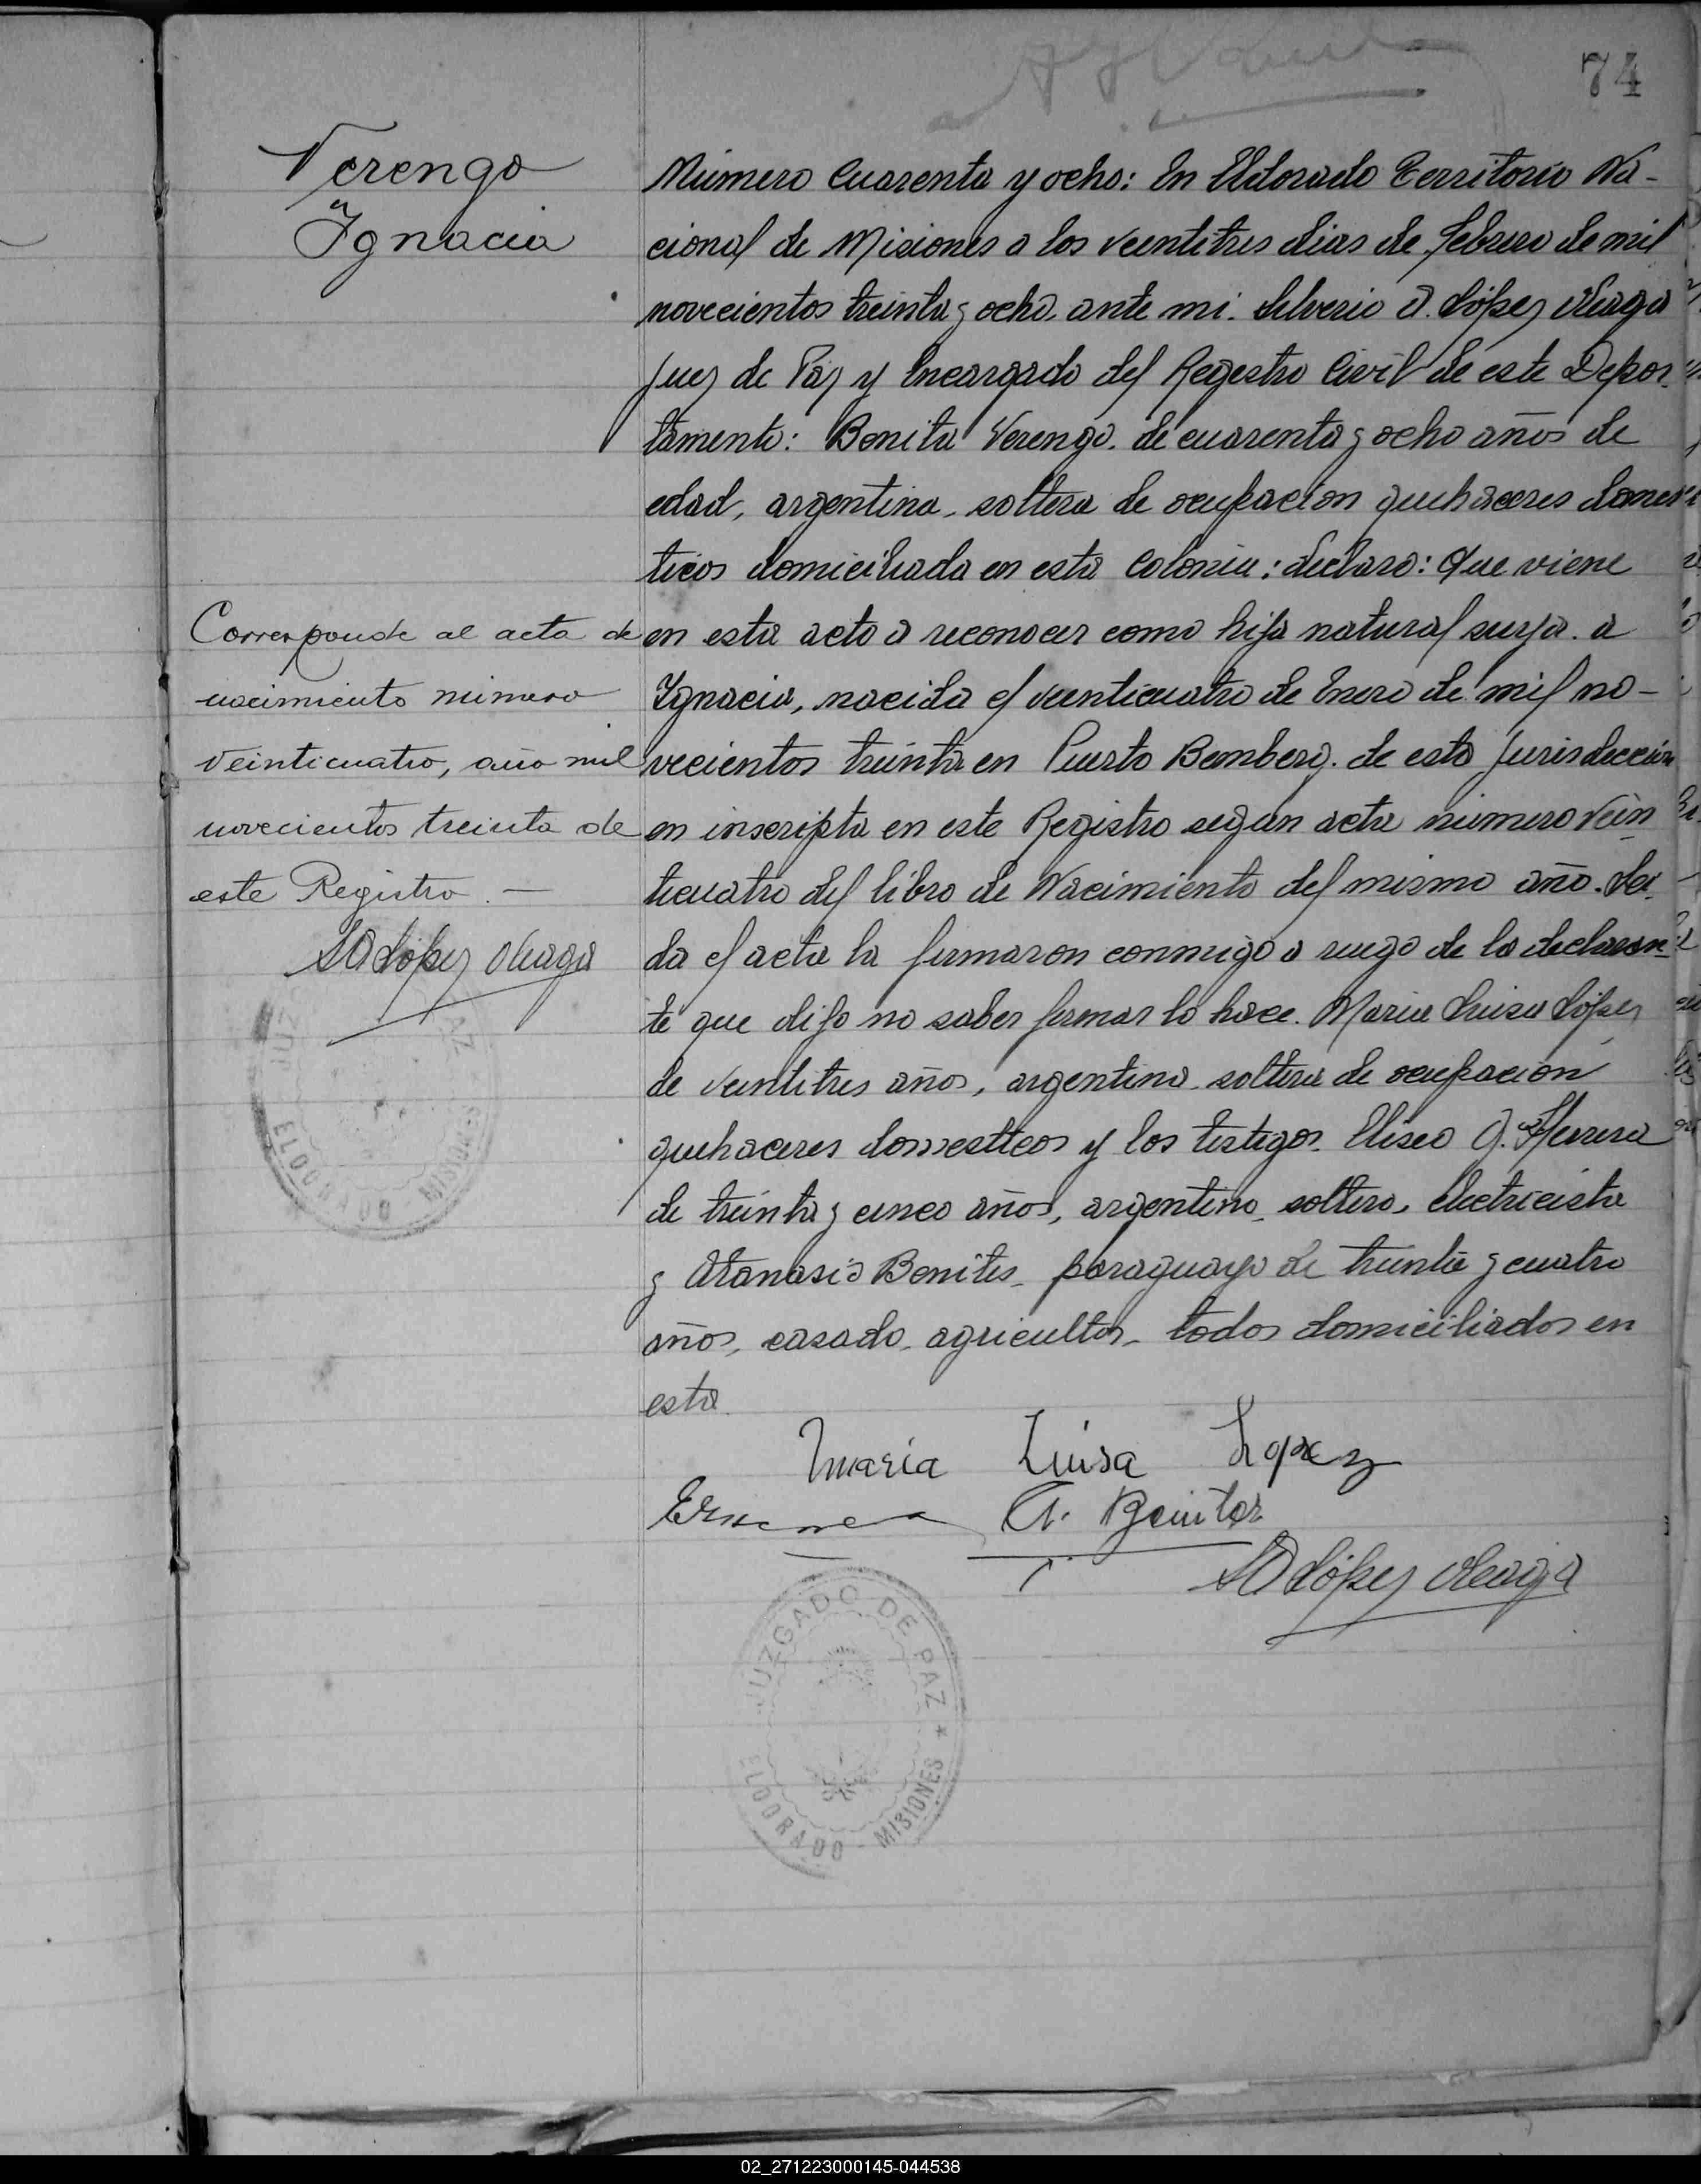 74
Verengo
Ignacia
Número Cuarenta y ocho: En Eldorado Territorio Na-
cional de Misiones a los veintitres dias de febrero de mil
novecientos treinta y ocho, ante mi. Silverio A. López Aleaga
Juez de Paz y Encargado del Registro Civil de este Depar-
tamento: Benita Verengo. de cuarenta y ocho años de
edad, argentina, soltera de ocupación quehaceres domes
ticos domiciliada en esta Colonia: declaro: Que viene
en esta acto a reconocer como hija natural suya. a
Ignacia, nacida el veinticuatro de Enero de mil no-
vecientos treinta en Puerto Bemberg. de esta Jurisdección
en inscripta en este Registro según acta número Vein
ticuatro del libro de Nacimiento del mismo año. Lei-
da el acta la firmaron conmigo a ruego de la declaran-
te que dijo no saber firmar lo hace. Maria Luisa López
de veintitres años, argentina soltera de ocupación
quehaceres domesticos y los testigos. Eliseo G. Herrera
de treinta y cinco años, argentino, soltero, electricista
y Atanasio Benites, paraguayo de treinta y cuatro
años, casado, agricultor, todos domiciliados en
esta.
Corresponde al acta de
nacimiento número
veinticuatro, año mil
novecientos treinta de
este Registro. —
SA López Aleaga
ELDORADO - MISIONES
Maria Luisa Lopez
A. Benitez
SA López Aleaga
JUZGADO DE PAZ * ELDORADO - MISIONES
02_271223000145-044538